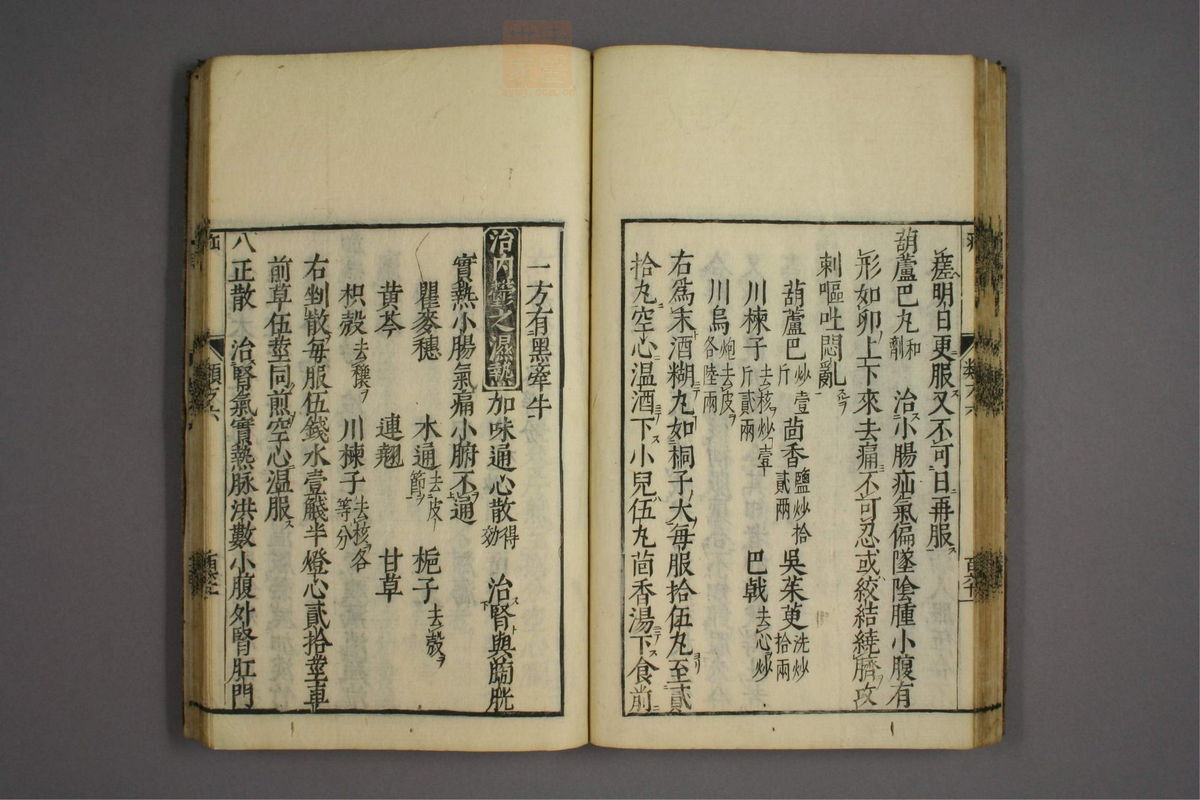 瘥明日更服又不可日再服
葫蘆巴丸和劑 治小腸疝氣偏墜陰腫小腹有
形如卵上下來去痛不可忍或絞結繞臍攻
刺嘔吐悶亂
葫蘆巴炒壹斤 茴香鹽炒拾貳兩 吳茱萸洗炒拾兩
川楝子去核炒壹斤貳兩 巴戟去心炒
川烏炮去皮各陸兩
右爲末酒糊丸如桐子大每服拾伍丸至貳
拾丸空心温酒下小兒伍丸茴香湯下食前
一方有黑牽牛
治内 之濕熱 加味通心散得効 治腎與膀胱
實熱小腸氣痛小腑不通
瞿麥穗 水通去皮節 梔子去殼
黄芩 連翹 甘草
枳殼去穰 川楝子去核各等分
右剉散每服伍錢水壹盞半燈心貳拾莖車
前草伍莖同煎空心温服
八正散 治腎氣實熱脉洪數小腹外腎肛門